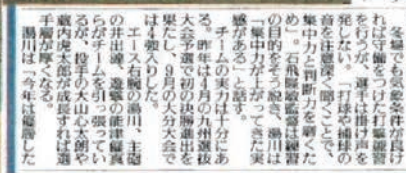 冬場でも気象条件が良け
れば守備をつけた打撃練習
を行うが、選手は掛け声を
発しない。「打球や捕球の
音を注意深く聞くことで、
集中力と判断力を磨くた
め」。石飛監督は練習
の目的をそう説き、湯川は
「集中力が上がってきた実
感がある」と話す。
チームの実力は十分にあ
る。昨年は4月の九州選抜
大会予選で初の決勝進出を
果たし、9月の大分大会で
は4強入りした。
エース右腕の湯川、主砲
の井出線、遊撃の能津優真
らがチームを引っ張ってい
るが、投手の大山心太朗や
蔵内虎太郎が成長すれば選
手層が厚くなる。
湯川は「今年は優勝した